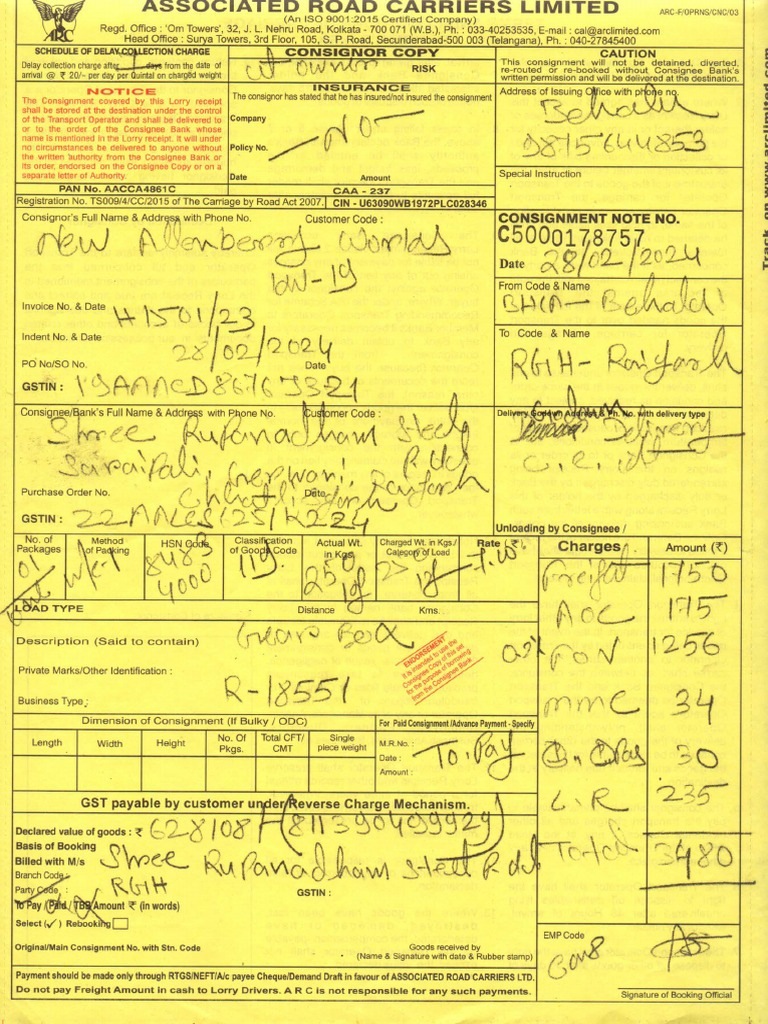 ASSOCIATED ROAD CARRIERS LIMITED
(An ISO 9001:2015 Certified Company)
ARC-F/0PRNS/CNC/03
ARC
Regd. Office : 'Om Towers', 32, J. L. Nehru Road, Kolkata - 700 071 (W.B.), Ph. : 033-40253535, E-mail : cal@arclimited.com
Head Office : Surya Towers, 3rd Floor, 105, S. P. Road, Secunderabad-500 003 (Telangana), Ph. : 040-27845400
SCHEDULE OF DELAY COLLECTION CHARGE
Delay collection charge after 7 days from the date of
arrival @ ₹ 20/- per day per Quintal on charged weight
CONSIGNOR COPY
at owner RISK
CAUTION
This consignment will not be detained, diverted,
re-routed or re-booked without Consignee Bank's
written permission and will be delivered at the destination.
NOTICE
The Consignment covered by this Lorry receipt
shall be stored at the destination under the control
of the Transport Operator and shall be delivered to
or to the order of the Consignee Bank whose
name is mentioned in the Lorry receipt. It will under
no circumstances be delivered to anyone without
the written 'authority from the Consignee Bank or
its order, endorsed on the Consignee Copy or on a
separate letter of Authority.
INSURANCE
The consignor has stated that he has insured/not insured the consignment
Company
NO
Policy No.
Date Amount
Address of Issuing Office with phone no.
Behala
08715644853
Special Instruction
PAN No. AACCA4861C
CAA - 237
Registration No. TS009/4/CC/2015 of The Carriage by Road Act 2007.
CIN - U63090WB1972PLC028346
Consignor's Full Name & Address with Phone No. Customer Code :
New Allenberry Works
CONSIGNMENT NOTE NO.
C5000178757
Date 28/02/2024
From Code & Name
BHLA- Behala
Invoice No. & Date
H1501/23
Indent No. & Date
28/02/2024
PO No/SO No. Date
GSTIN : 19AAACD8676J3Z1
To Code & Name
RGIH- Raigarh
Consignee/Bank's Full Name & Address with Phone No. Customer Code :
Shree Rupanadham Steel
P. ltd
Saraipali, Gerwani, Raigarh
Chhattisgarh
Purchase Order No. Date
GSTIN :
Delivery Godown Address & Ph. No. with delivery type
Godown
Delivery
Unloading by Consigneee /
No. of Packages
01
Method of Packing
HSN Code
8483
4000
Classification of Goods Code
119
Actual Wt. in Kgs.
250
Charged Wt. in Kgs./ Category of Load
250
Rate (₹)
7.00
LOAD TYPE Distance Kms.
Description (Said to contain) Gear Box
ENDORSEMENT
It is intended to use the
Consignee Copy of this set
for the purpose of borrowing
from the Consignee Bank
Private Marks/Other Identification :
R-18551
Business Type :
Charges Amount (₹)
Freight 1750
AOC 175
FOV 1256
MMC 34
30
L.R 235
Total 3480
Dimension of Consignment (If Bulky / ODC)
Length Width Height No. Of Pkgs. Total CFT/ CMT Single piece weight
For Paid Consignment /Advance Payment - Specify
M.R.No. :
Date :
Amount :
To. Pay
GST payable by customer under Reverse Charge Mechanism.
Declared value of goods : ₹ 628108/- (811390499929)
Basis of Booking
Billed with M/s Shree Rupanadham Steel P. ltd
Branch Code :
Party Code : RGIH
GSTIN :
To Pay / Paid / TBB Amount ₹ (in words)
Select (✓) Rebooking
Original/Main Consignment No. with Stn. Code
Goods received by
(Name & Signature with date & Rubber stamp)
EMP Code
Signature of Booking Official
Payment should be made only through RTGS/NEFT/A/c payee Cheque/Demand Draft in favour of ASSOCIATED ROAD CARRIERS LTD.
Do not pay Freight Amount in cash to Lorry Drivers. A R C is not responsible for any such payments.
Track on www.arclimited.com